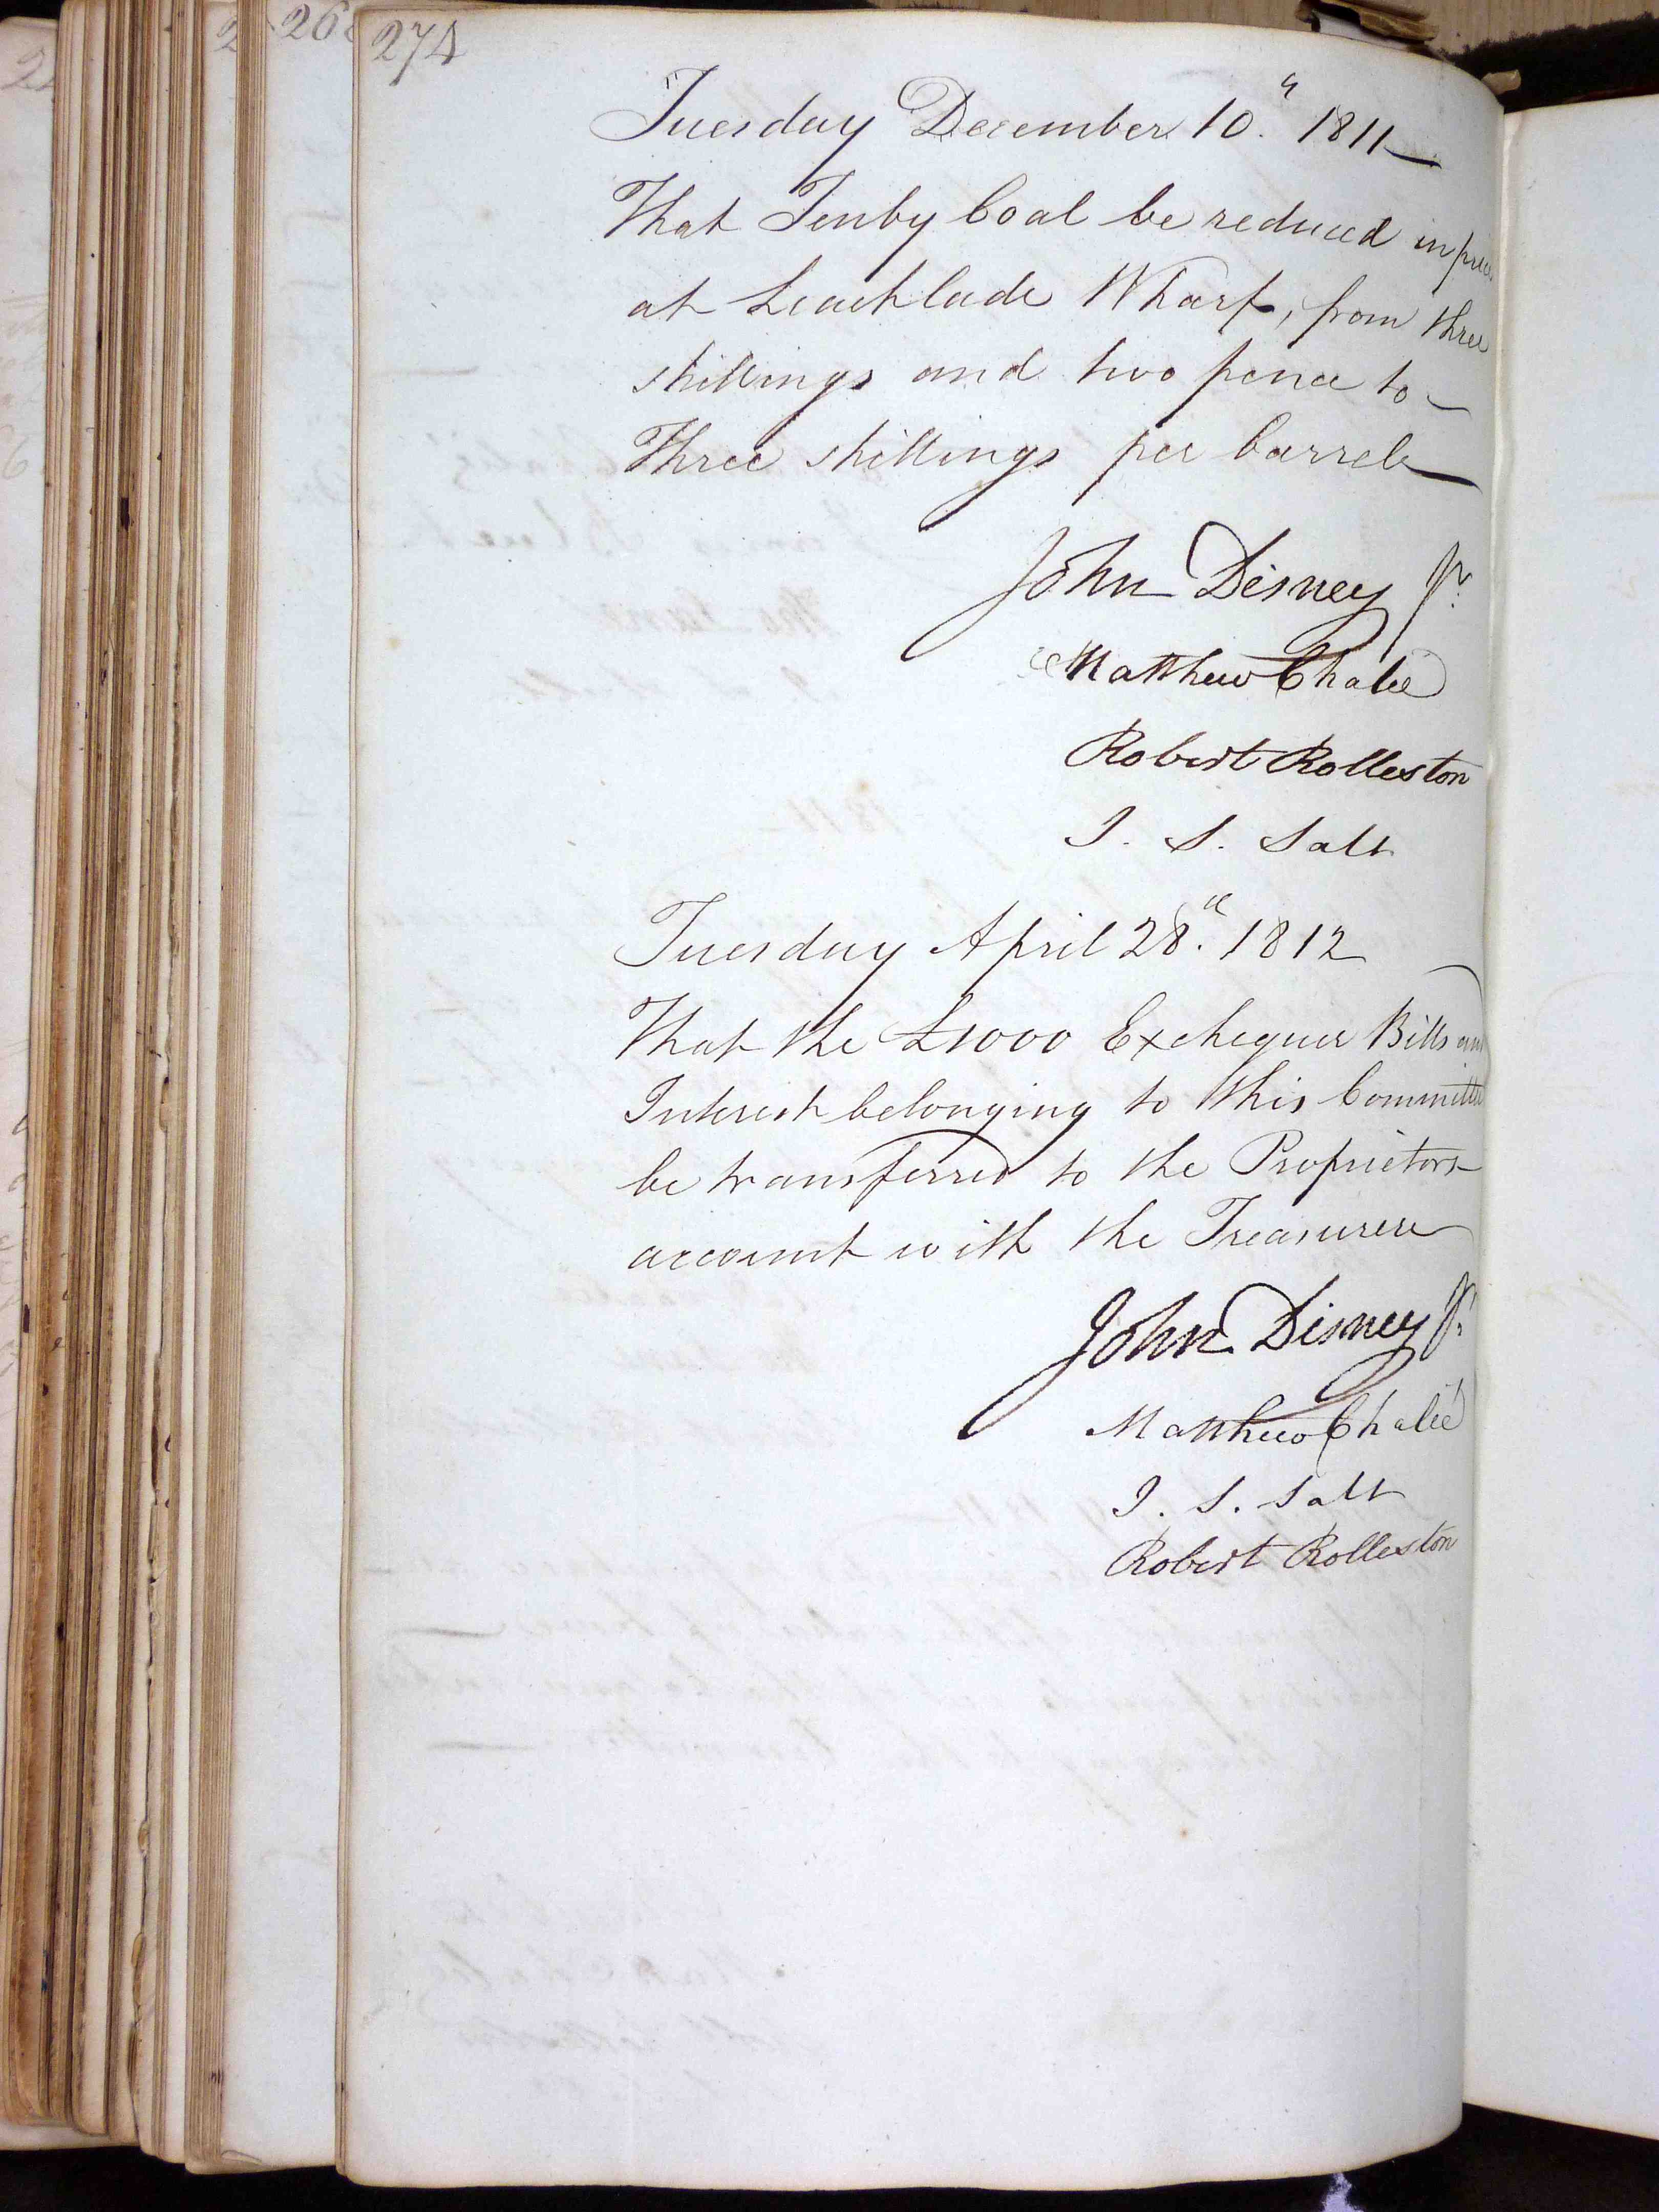 274
Tuesday December 10.th 1811
That Tenby Coal be reduced in price
at Leachlade Wharf, from three
shillings and two pence to
Three shillings per barrel
John Disney Jr.
Matthew Chalié
Robert Rolleston
J. S. Salt
Tuesday April 28.th 1812
That the £1000 Exchequer Bills and
Interest belonging to this Committee
be transferred to the Proprietors
account with the Treasurer
John Disney Jr.
Matthew Chalié
J. S. Salt
Robert Rolleston